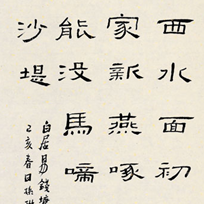 西水面初
家新燕啄
能没馬啼
沙堤
白居易錢塘
亥春日孫